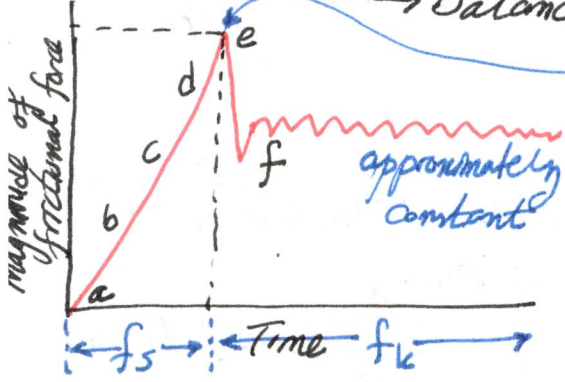 → Balanc
e
d
c
b
a
f
magnitude of
frictional force
approximately
constant
fs
Time
fk